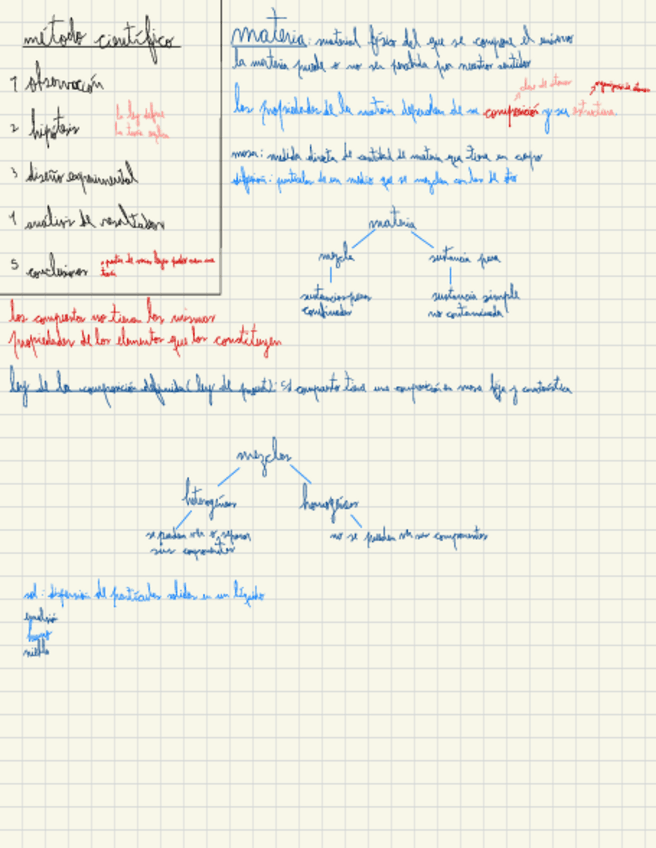 método científico
1 observación
2 hipótesis
la ley define
la teoría explica
3 diseño experimental
4 análisis de resultados
5 conclusiones
materia: material físico del que se compone el universo
la materia puede o no ser percibida por nuestros sentidos
las propiedades de la materia dependen de su composición y su estructura
masa: medida directa de cantidad de materia que tiene un cuerpo
dispersión: partículas de un medio que se mezclan con las de otro
materia
mezcla
sustancia pura
sustancias puras
combinadas
sustancia simple
no contaminada
los compuestos no tienen las mismas
propiedades de los elementos que los constituyen
ley de la composición definida (ley de proust): c/ compuesto tiene una composición en masa fija y característica
mezclas
heterogéneas
homogéneas
se pueden ver o separar
sus componentes
no se pueden ver sus componentes
sol: dispersión de partículas solidas en un líquido
emulsión
humo
niebla